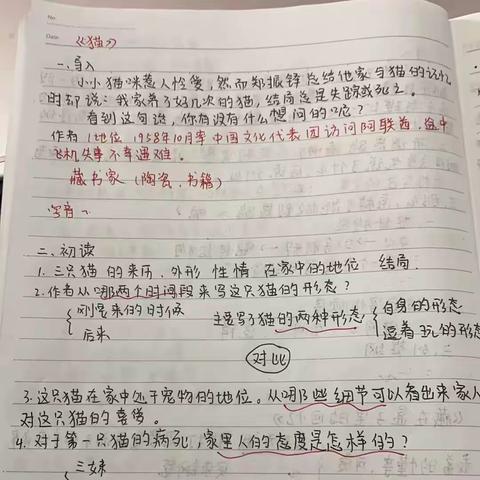 No.
Date
《猫》
一、导入
小小猫咪惹人怜爱,然而郑振铎总结他家与猫的记忆
时却说:我家养了好几次的猫,结局总是失踪或死亡。
看到这句话,你有没有什么想问的呢?
作者 1地位 1958年10月率中国文化代表团访问阿联酋,途中
飞机失事不幸遇难。
藏书家(陶瓷、书籍)
字音
二、初读
1. 三只猫的来历、外形 性情 在家中的地位 结局.
2. 作者从哪两个时间段来写这只猫的形态?
刚要来的时候 主要写了猫的两种形态 自身的形态
后来 逗着玩的形态
对比
3. 这只猫在家中处于宠物的地位。从哪些细节可以看出来家人
对这只猫的喜爱。
4. 对于第一只猫的病死,家里人的态度是怎样的?
三妹